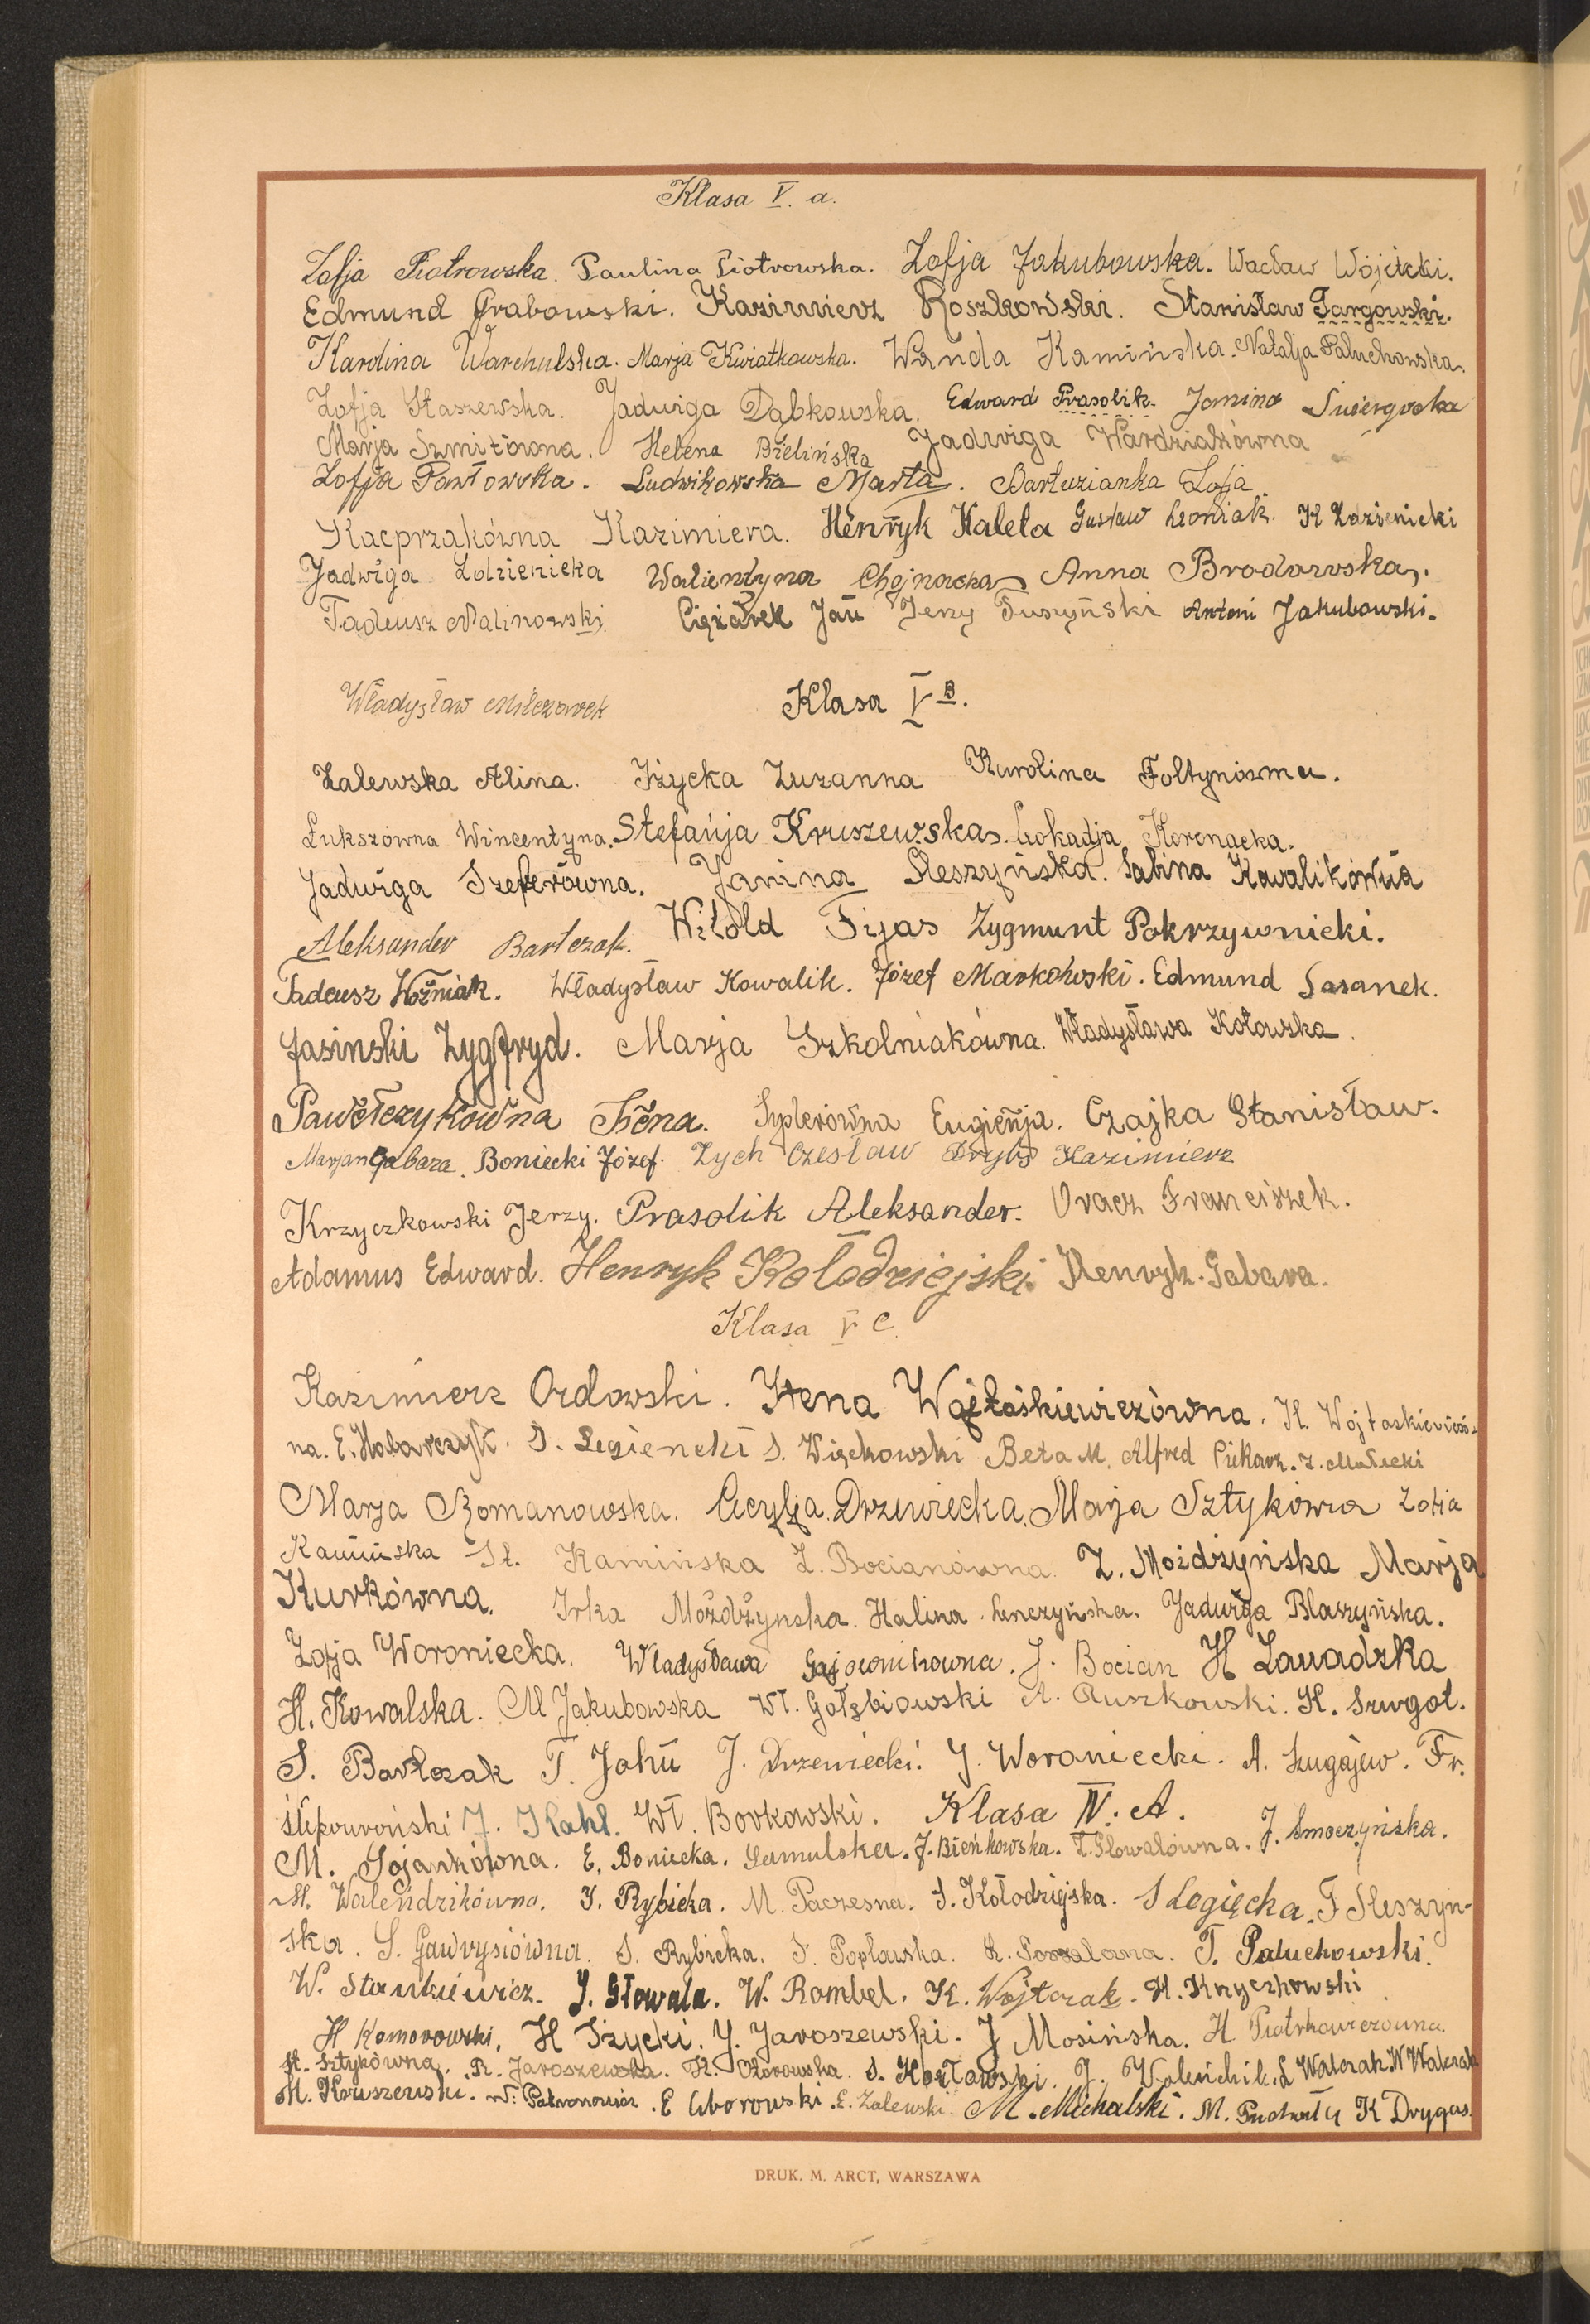 Klasa V. a.
Zofja Piotrowska. Paulina Piotrowska. Zofja Jakubowska. Wacław Wójicki.
Edmund Grabowski. Kazimierz Roszkowski. Stanisław Targowski.
Karolina Warchulska. Marja Kwiatkowska. Wanda Kamińska. Natalja Paluchowska.
Zofja Staszewska. Jadwiga Dąbkowska. Edward Prasolik. Janina Świergocka
Marja Szmitówna. Helena Bielińska Jadwiga Wardziakówna
Zofja Pawłowska. Ludwikowska Marta. Bartuzianka Zofja.
Kacprzakówna Kazimiera. Henryk Kaleta Gustaw Leoniak. K Łodzienicki
Jadwiga Łodzienicka Walientyna Chojnacka Anna Brodowska.
Tadeusz Malinowski Ciężarek Jan Jerzy Tuszyński Antoni Jakubowski.
Władysław Milczarek Klasa V B.
Zalewska Alina. Iżycka Zuzanna Karolina Foltynówna.
Łukszówna Wincentyna. Stefanja Kruszewska. Leokadja Korcnacka.
Jadwiga Szeferówna. Janina Śleszyńska. Sabina Kowalikówna
Aleksander Bartczak. Witold Fijas Zygmunt Pokrzywnicki.
Tadeusz Woźniak. Władysław Kowalik. Józef Markowski. Edmund Sasanek.
Jasinski Zygfryd. Marja Szkolniakówna. Władysława Kotowska.
Pawełczykówna Irena. Syplerówna Eugienja. Czajka Stanisław.
Marjan Gabara. Boniecki Józef. Zych Czesław Drybs Kazimierz
Krzyczkowski Jerzy. Prasolik Aleksander. Oracz Franciszek.
Adamus Edward. Henryk Kołodziejski Henryk. Gabara.
Klasa V C
Kazimierz Ordowski. Irena Wojtaśkiewiczówna. H. Wojtaskiewiczów-
na. E. Habarczyk. S. Legiencki S. Więckowski Beta M. Alfred Piekarz. Z. Małecki
Marja Romanowska. Cecylja Drzewiecka, Marja Sztykówna Zofia
Kamińska St. Kamińska Z. Bocianówna. Z. Możdżyńska Marja
Kurkówna. Irka Możdżynska. Halina Lenczyńska. Jadwiga Blaszyńska.
Zofja Woroniecka. Władysława Gajownikówna. J. Bocian H Zawadzka
H. Kowalska. M Jakubowska Wł. Gołębiowski A. Ruszkowski. K. Szwgot.
S. Bartczak T. Jahn J. Drzewiecki. J. Woroniecki. A. Ługajew. Fr.
J. Kahl. Wł. Borkowski. Klasa IV. A. J. Smoczyńska.
M. Sojankówna. E. Boniecka. Gamulska. J. Bieńkowska. Z. Słowalówna.
M. Walendzikówna. I. Rybicka. M. Paczesna. S. Kołodziejska. S Legięcka. F Śleszyn-
ska. S. Gawrysiówna. S. Rybicka. S. Popławska. T. Paluchowski.
W. Stankiewicz. J. Słowala. W. Rombel. K. Wojtczak. H. Krzyczkowski
H Komorowski. H Iżycki. J. Jaroszewski. J Mosińska. H Piotrkowiczówna.
H. Sztykówna. R. Jaroszewska. K. Ożarowska. S. Kozłowski. J. Walenchik. L Walczak W Walczak
M. Kruszewski. W. Patronowicz. E Uborowski. E. Zalewski M. Michalski. M. K Drygas.
DRUK. M. ARCT, WARSZAWA